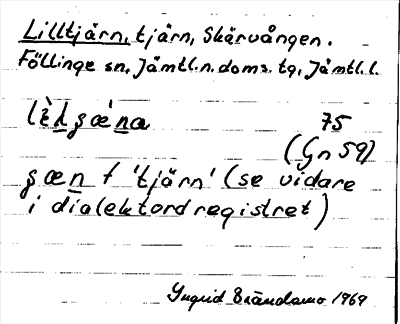 Lilltjärn, tjärn, Skärvången.
Föllinge sn, Jämtl.n.doms. tg, Jämtl.l.
75
(Gn 59)
gæn f 'tjärn' (se vidare
i dialektordregistret)
Yngrid Brändamo 1969